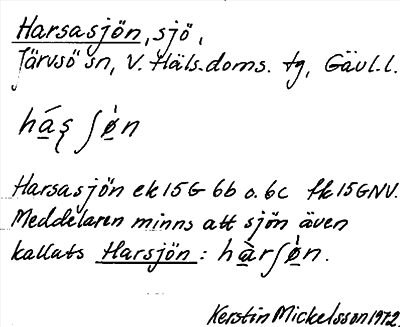 Harsasjön, sjö,
Järvsö sn, V. Häls. doms. tg, Gävl. l.
hás̨ ʃø̀n
Harsasjön ek 15G 6b o. 6c fk 15GNV.
Meddelaren minns att sjön även
kallats Harsjön: hàrʃø̀n.
Kerstin Mickelsson 1972